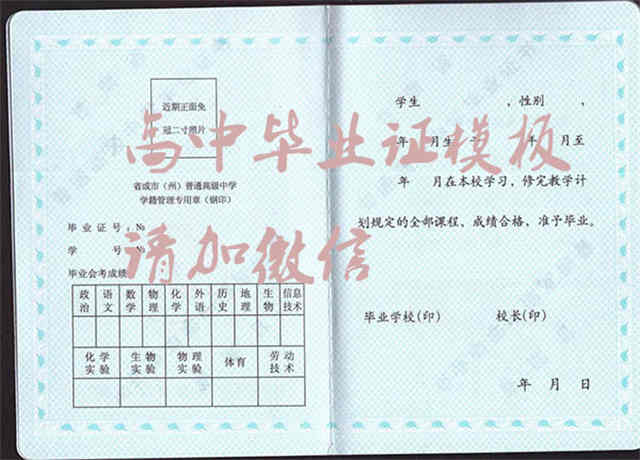 近期正面免
冠二寸照片
省成市（州）普通高级中学
学籍管理专用章（钢印）
毕业证号：№
学 号 №
毕业会考成绩
政治 语文 数学 物理 化学 外语 历史 地理 生物 信息技术
化学实验 生物实验 物理实验 体育 劳动技术
学生 ，性别 ，
年 月生 年 月至
年 月在本校学习，修完教学计
划规定的全部课程，成绩合格，准予毕业。
毕业学校(印) 校长(印)
年 月 日
高中毕业证模板
请加微信